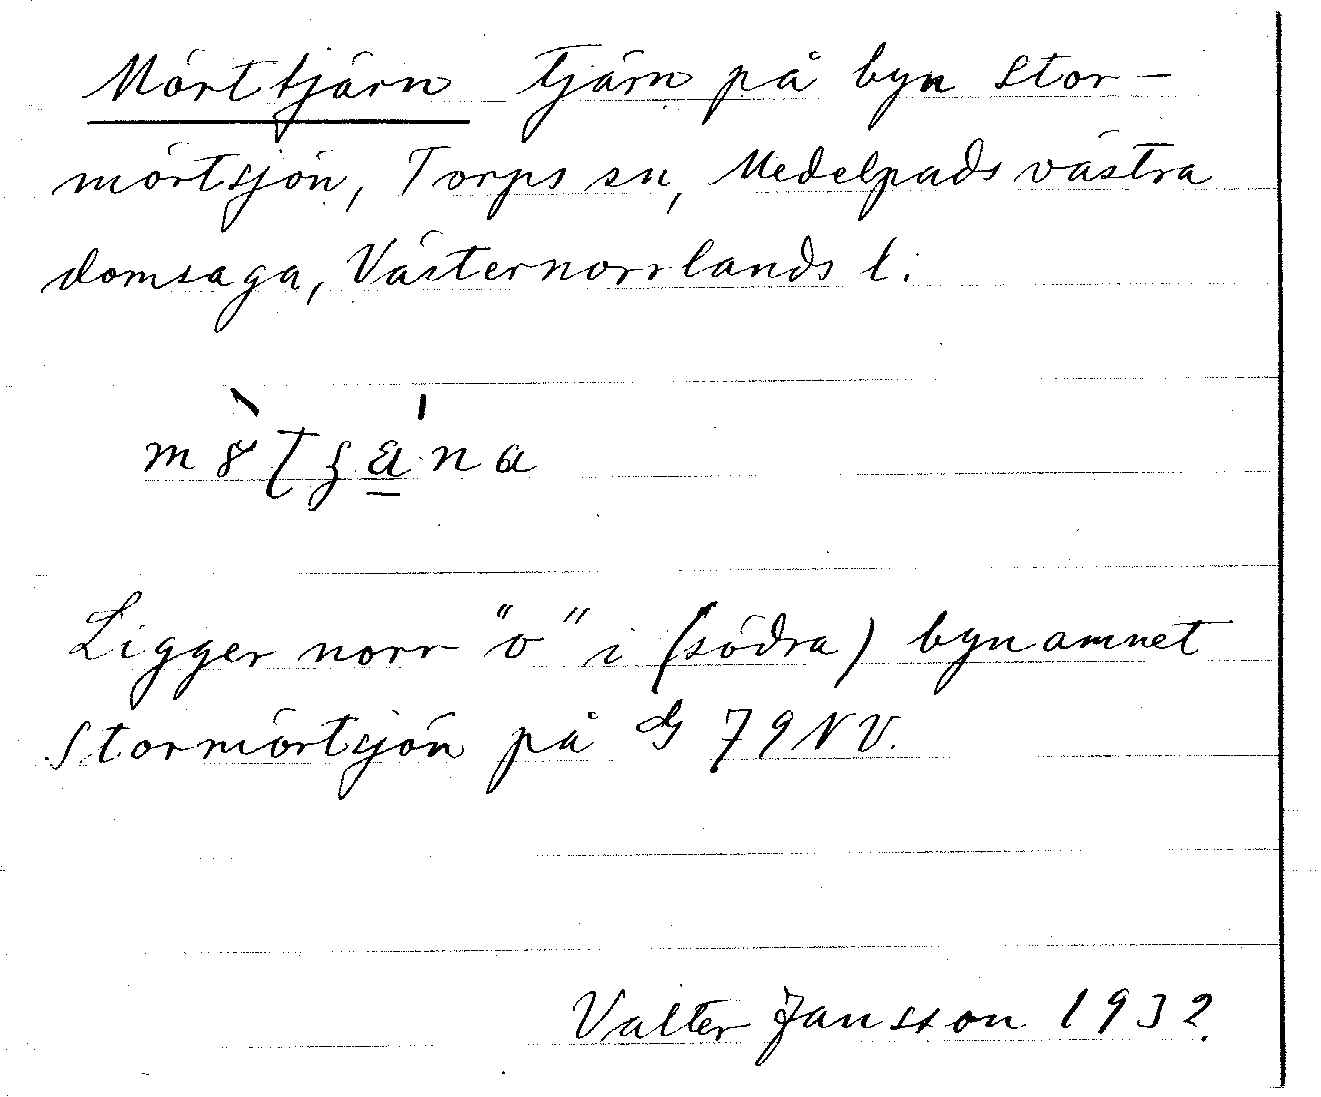 Mörttjärn tjärn på byn Stor-
mörtsjön, Torps sn, Medelpads västra
domsaga, Västernorrlands l.
Ligger norr "o" i (södra) bynamnet
Stormörtsjön på G 79 NV.
Valter Jansson 1932.